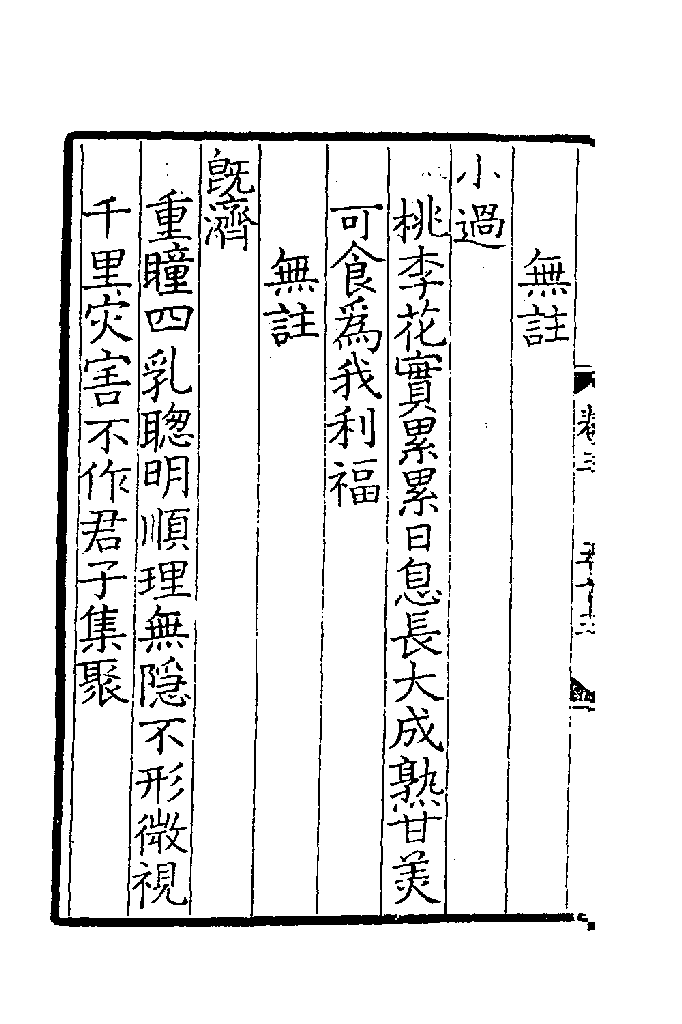 無註
小過
桃李花實累累日息長大成熟甘美
可食爲我利福
無註
旣濟
重瞳四乳聰明順理無隱不形微視
千里灾害不作君子集聚
卷三